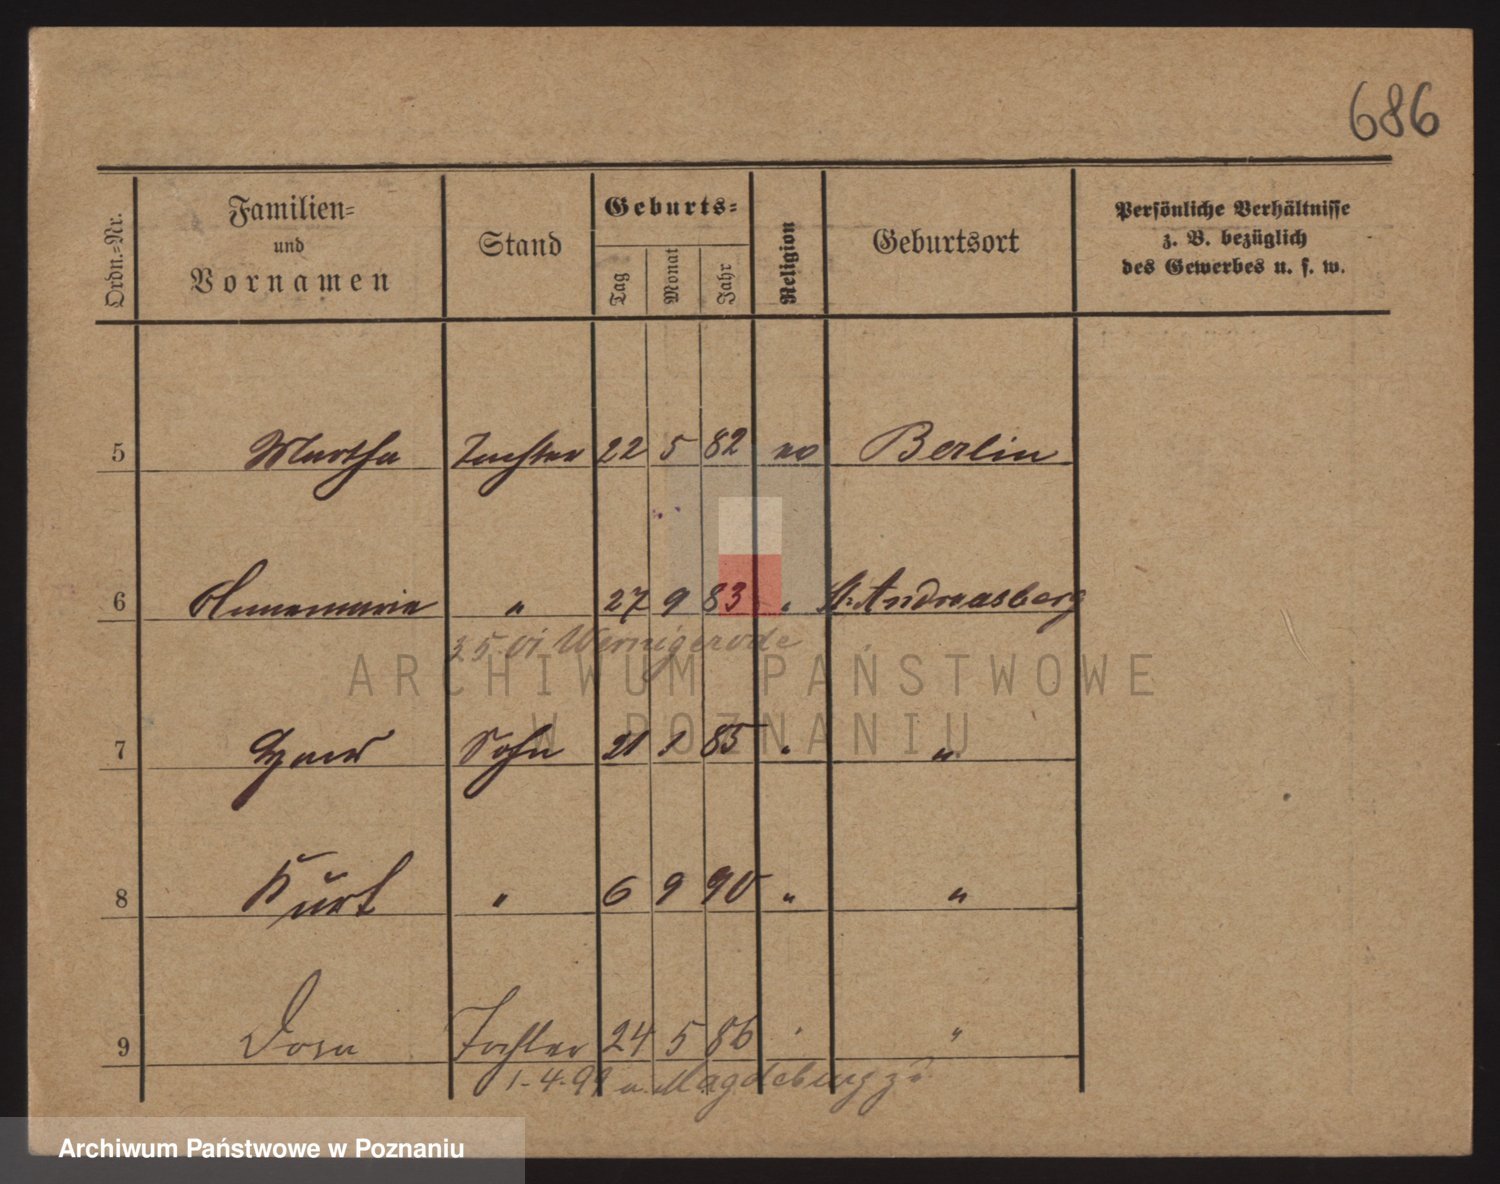 686
Ordn.-Nr.
Familien-
und
Vornamen
Stand
Geburts-
Tag
Monat
Jahr
Religion
Geburtsort
Persönliche Verhältnisse
z. B. bezüglich
des Gewerbes u. s. w.
5 Martha Tochter 22 5 82 ev Berlin
6 Annemarie " 27 9 83 " St. Andreasberg
Wernigerode
ARCHIWUM PAŃSTWOWE
W POZNANIU
7 Sohn 21 1 85 " "
8 Kurt " 6 9 90 " "
9 Dora Tochter 24 5 86 " "
1.4.99 Magdeburg
Archiwum Państwowe w Poznaniu